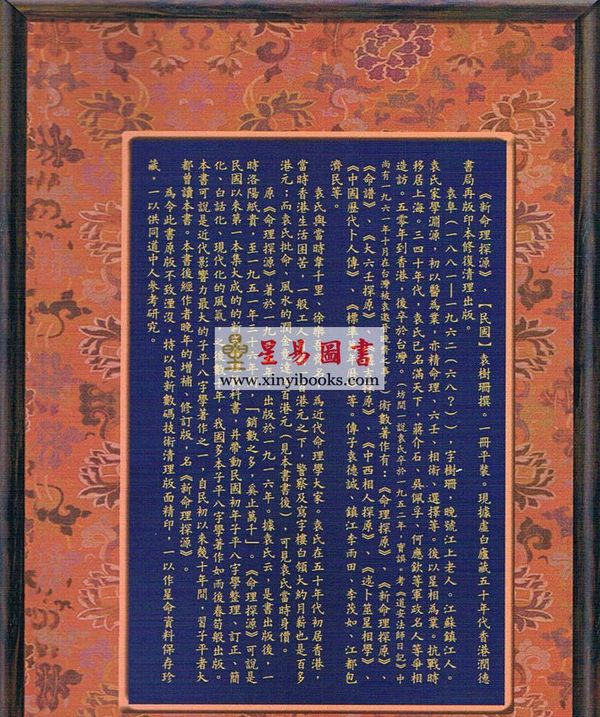 《新命理探源》，【民國】袁樹珊撰。一冊平裝。現據虛白廬藏五十年代香港潤德
書局再版印本修復清理出版。
袁阜（一八八一—一九六二（六八？）），字樹珊，晚號江上老人。江蘇鎮江人。
袁氏家學淵源，初以醫為業，亦精命理、六壬、相術、選擇等。後以星相為業。抗戰時
移居上海。三四十年代，袁氏已名滿天下，蔣介石、吳佩孚、何應欽等軍政名人等爭相
造訪。五零年到香港，後卒於台灣。（坊間一說袁氏卒於一九五二年，實誤。考《道安法師日記》中
尚有一九六一年十月在台灣被袁邀
術數著作有：《命理探源》、《新命理探源》、
《命譜》、《大六壬探源》、
《中西相人探源》、《述卜筮星相學》、
《中國歷代卜人傳》、《標準
等。傳子袁德誠、鎮江李雨田、李茂如、江都包
濟民等。
袁氏與當時韋千里、徐樂
為近代命理學大家。袁氏在五十年代初居香港，
當時香港生活困苦，一般工人
港元之下，警察及寫字樓白領大約月薪也是百多
港元；而袁氏批命、風水的潤金
百港元（見本書書後），可見袁氏當時身價。
原《命理探源》著於一九一
出版於一九一六年。據袁氏云，是書出版後，一
時洛陽紙貴，至一九五一年三十
「銷數之多，奚止萬千」。《命理探源》可說是
民國以來第一本集大成的的新
科書，并帶動民國初年子平八字學整理、訂正、簡
化、白話化、現代化的風氣，之後數
年，我國多本子平八字學著作如雨後春筍般出版。
本書可說是近代影響力最大的子平八字學著作之一，自民初以來幾十年間，習子平者大
都曾讀本書。本書後經作者晚年的增補、修訂版，名《新命理探源》。
為令此書原版不致湮沒，特以最新數碼技術清理版面精印，一以作星命資料保存珍
藏，一以供同道中人參考研究。
星易圖書
www.xinyibooks.com